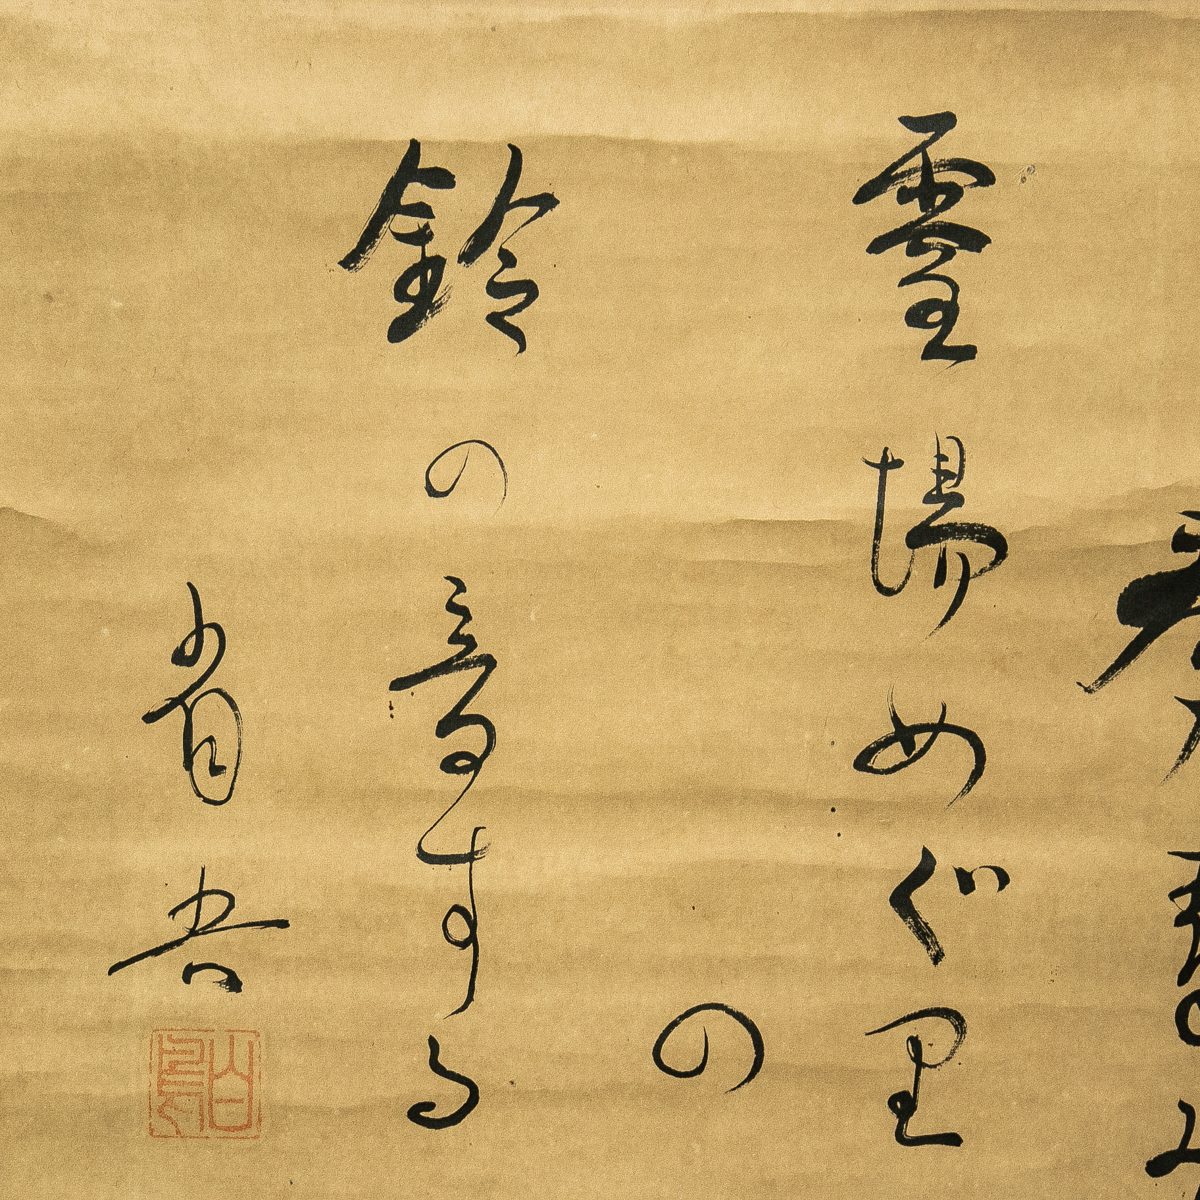 霊場めぐ里
の
鈴の音する
省吾